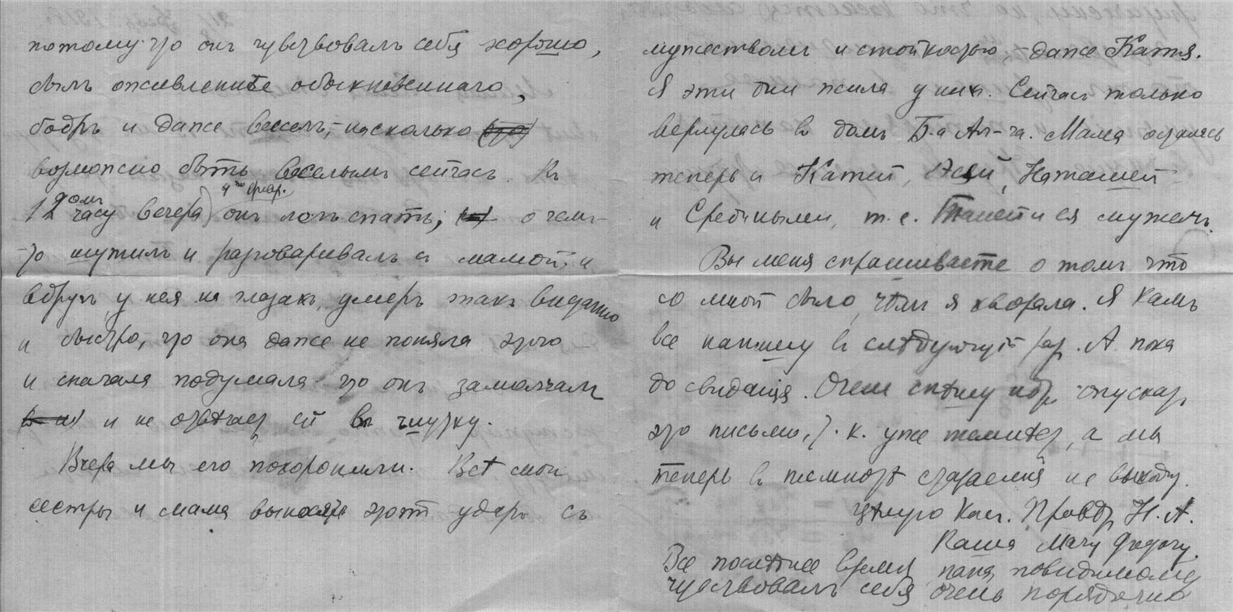 потому что онъ чувствовалъ себя хорошо,
былъ оживленнѣе обыкновеннаго,
бодръ и даже веселъ, насколько
возможно быть веселымъ сейчасъ. Въ
4го февр.
12омъ часу вечера онъ легъ спать, о чемъ-
то шутилъ и разговаривалъ съ мамой, и
вдругъ, у нея на глазахъ, умеръ такъ внезапно
и быстро, что она даже не поняла этого
и сначала подумала что онъ замолчалъ
и не отвѣчаетъ ей въ шутку.
Вчера мы его похоронили. Всѣ мои
сестры и мама выносятъ этотъ ударъ съ
мужествомъ и стойкостью даже Катя.
Я эти дни жила у нихъ. Сейчасъ только
вернулась въ домъ Б-а Ал-ча. Мама осталась
теперь съ Катей, Асей, Наташей
и Средиными, т. е. Таней и ея мужемъ.
Вы меня спрашиваете о томъ что
со мной было, чѣмъ я хворала. Я Вамъ
все напишу въ слѣдующій разъ. А пока
до свиданія. Очень спѣшу опускать
это письмо, т. к. уже темнѣетъ, а мы
теперь въ темнотѣ стараемся не выходить.
Цѣлую Вас. Н. А.
Ваша
Все послѣднее время папа повидимому
чувствовалъ себя очень порядочно